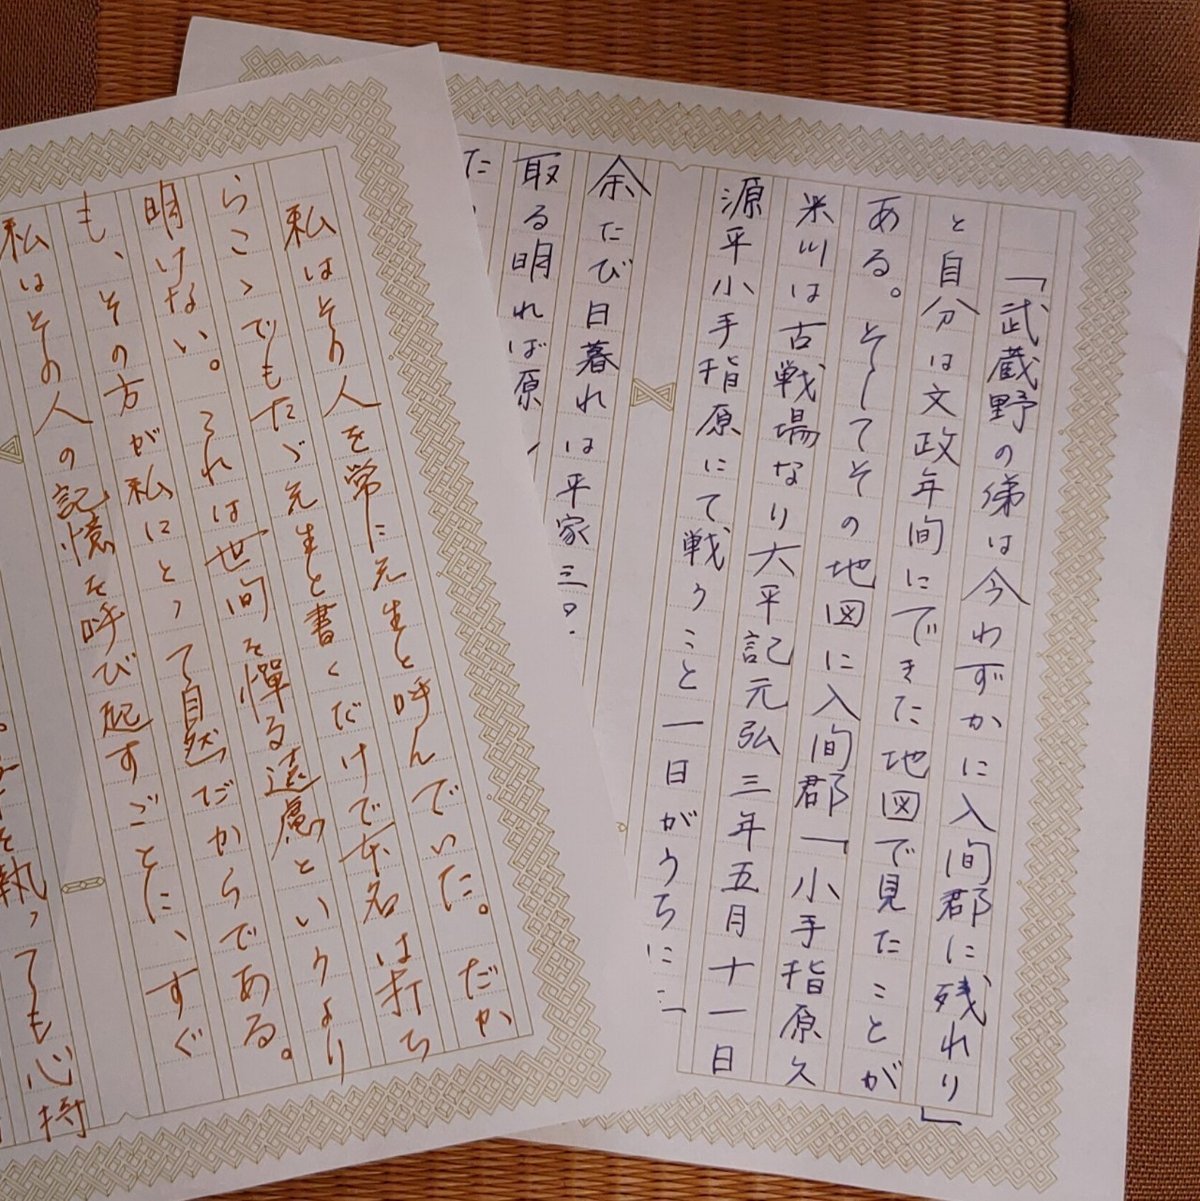 「武蔵野の俤は今わずかに入間郡に残れり」
と自分は文政年間にできた地図で見たことが
ある。そしてその地図に入間郡「小手指原久
米川は古戦場なり大平記元弘三年五月十一日
源平小手指原にて戦うこと一日がうちに三
余たび日暮れは平家三
取る明れば原
た
私はその人を常に先生と呼んでいた。だか
らこゝでもたゞ先生と書くだけで本名は打ち
明けない。これは世間を憚る遠慮というより
も、その方が私にとって自然だからである。
私はその人の記憶を呼び起すごとに、すぐ
を執っても心持